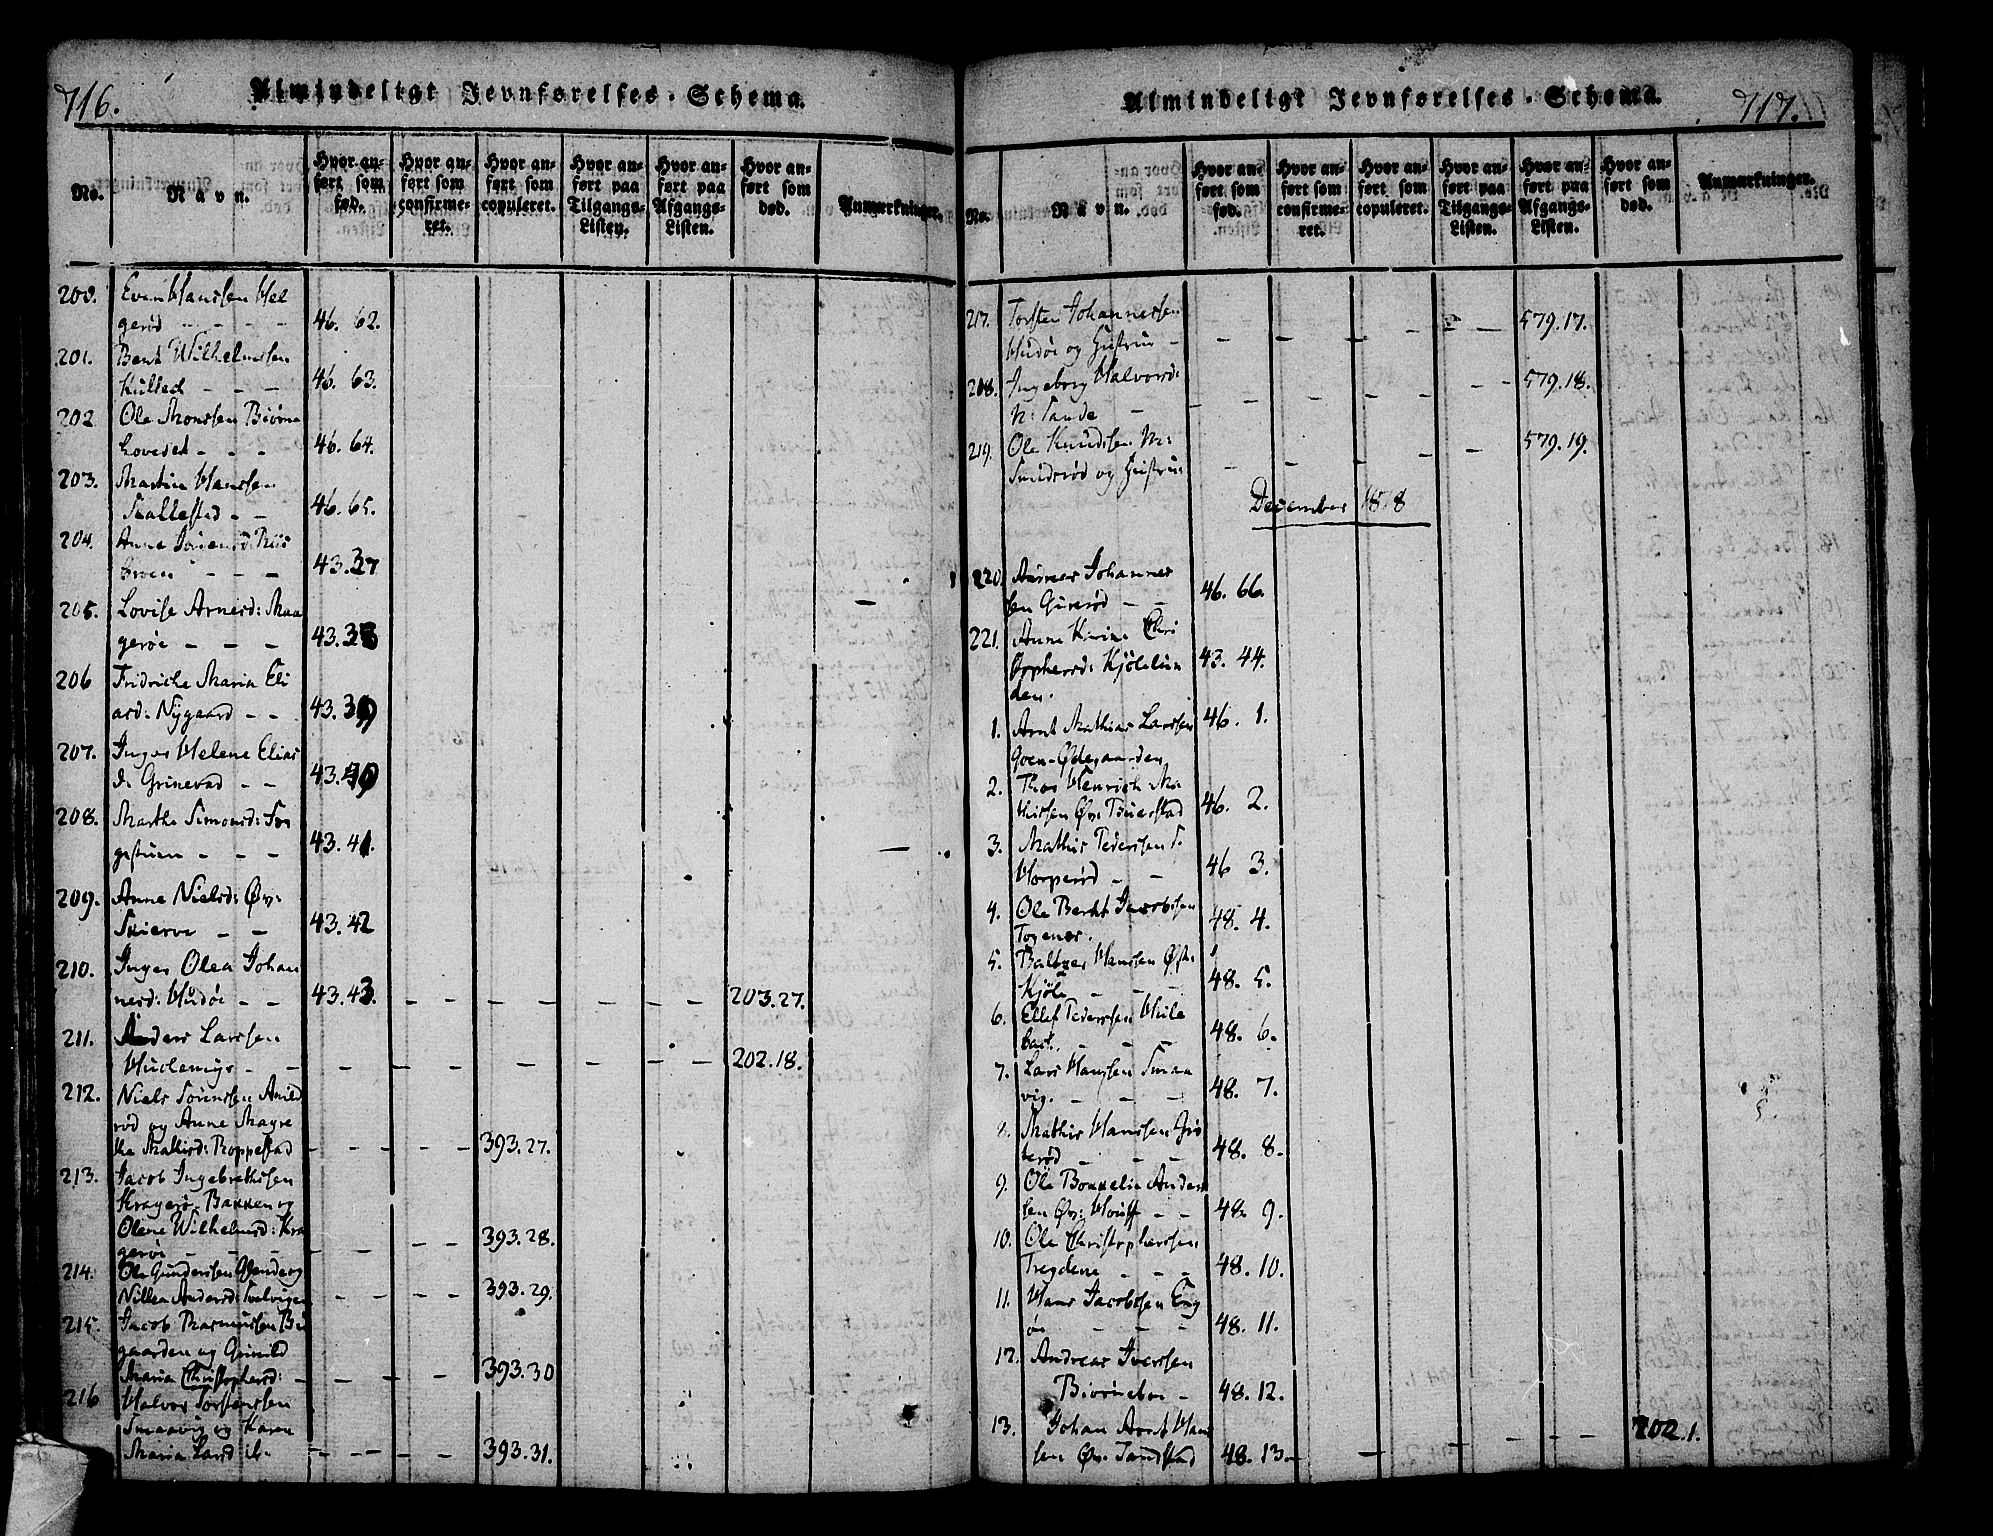 716.
Almindeligt Jevnførelses-Schema.
No.
Navn.
Hvor anført som fød.
Hvor anført som confirmeret.
Hvor anført som copuleret.
Hvor anført paa Tilgangs-Listen.
Hvor anført paa Afgangs-Listen.
Hvor anført som død.
Anmærkninger.
200. Even Hanssen Hel
gerød - - - - 46. 62.
201. Bent Wilhelmssen
- - - 46. 63.
202 Ole Monssen Biørne
hovedet - - - 46. 64.
203. Martin Hanssen
Skallestad - - 46. 65.
204. Anne
- - - 43. 37
205. Lovise Arnesd: Maa
gerøe - - - 43. 38
206 Fridriche Maria Eli
asd: Nygaard - - 43. 39
207. Inger Helene Elias
d: Grinevad - - 43. 40
208. Marthe Simonsd:
- - - 43. 41.
209. Anne Nielsd: Øv:
Skierve - - 43. 42
210. Inger Olea Johan
nesd: Hudøe - - 43. 43. - - - - - - - 203. 27.
211. Anders Larssen
- - - - - - - 202. 18.
212. Niels Sørenssen
rød og Anne Magre
the Mathisd: Roppestad - - - - 393. 27.
213. Jacob Ingebrethssen
Kragerø Bakken og
Olene Wilhelmsd: Kra
gerøe - - - - - - 393. 28.
214. Ole Gunderssen
Andersd: - - - - 393. 29.
215. Jacob Rasmussen
gaarden og
Maria Christophersd: - - - - 393. 30
216 Halvor Torstenssen
Smaavig og Karen
Maria Larsd - - - 393. 31.
Almindeligt Jevnførelses-Schema.
717.
No.
Navn.
Hvor anført som fød.
Hvor anført som confirmeret.
Hvor anført som copuleret.
Hvor anført paa Tilgangs-Listen.
Hvor anført paa Afgangs-Listen.
Hvor anført som død.
Anmærkninger.
217. Torsten Johannessen
Hudøe og Hustrue - - - - - - 579. 17.
208. Ingeborg Halvorsd:
N: Sande - - - - - - 579. 18.
219. Ole Knudssen N:
Smidsrød og Hustrue - - - - - 579. 19.
December 1818
220 Andreas Johannes
sen - - 46. 66.
221. Anne Karine Chri
stophersd: Kjølelun
den. 43. 44.
1. Arnt Mathias Larssen
Goen-Ødegaarden 46. 1.
2. Thor Henrich Ma
thissen Øv: 46. 2.
3. Mathis Pederssen S.
Horperød - - 46 3.
4. Ole Bernt Jacobssen
Togenes. 48. 4.
5. Baltzer Hanssen Øst:
Kjøle - - - 48. 5.
6. Ellef Pederssen
- - - 48. 6.
7. Lars Hanssen Smaa
vig. - - - 48. 7.
8. Mathis Hanssen
- - - 48. 8.
9. Ole Anders
sen Øv: - - 48. 9.
10. Ole Christopherssen
Tregdene - - - 48. 10.
11. Hans Jacobssen Eng
øe - - - 48. 11.
12. Andreas Iverssen
Biørneboe - 48. 12.
13. Johan Arnt Han
sen Øv: 48. 13. - - - - - 202. 1.